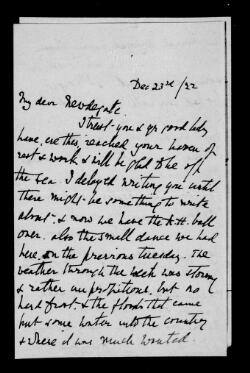 Dec 23rd /22
My dear Newdegate.
I trust you & yr good lady
have, ere this, reached your haven of
rest & work & will be glad to be off
the sea. I delayed writing you until
there might be something to write
about & now we have the K.H. ball
over. also the small dance we had
here, on the previous Tuesday. The
weather through the week was stormy
& rather unpropitious, but no
hard frost. & the floods that came
put some water into the country
& where it was much wanted.